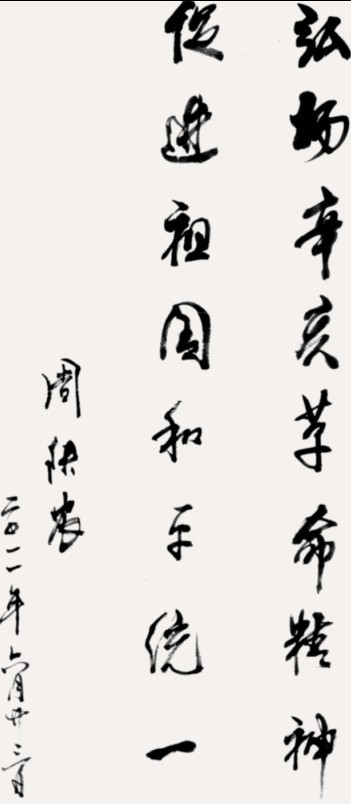 弘扬辛亥革命精神
促進祖国和平统一
周铁农
二〇一一年六月廿三日